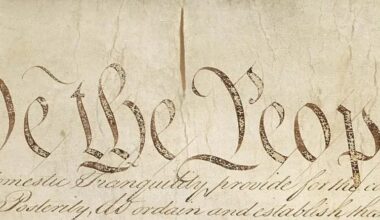 We the Peop
omestic Tranquility, provide for the co
Posterity, do ordain and establish this